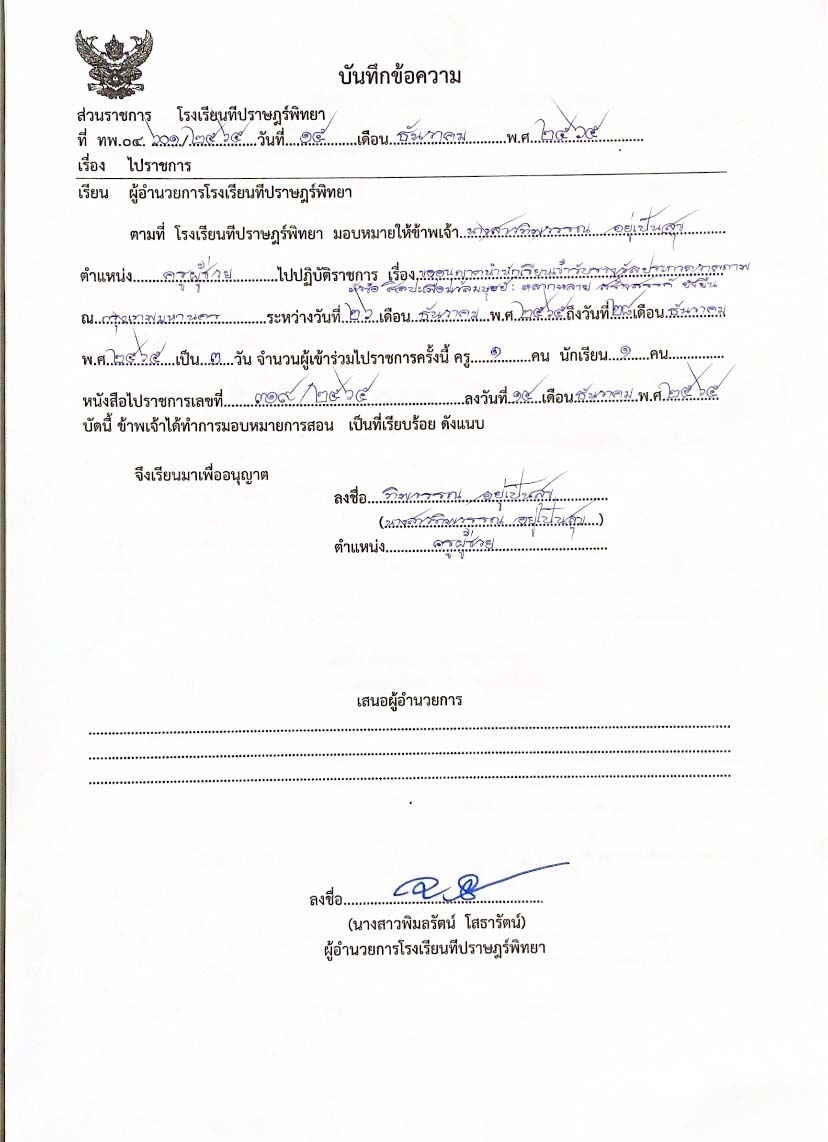 บันทึกข้อความ
ส่วนราชการ โรงเรียนทีปราษฎร์พิทยา
ที่ ทพ.๐๔. ๖๐๑/๒๕๖๕ วันที่ ๑๕ เดือน ธันวาคม พ.ศ. ๒๕๖๕
เรื่อง ไปราชการ
เรียน ผู้อำนวยการโรงเรียนทีปราษฎร์พิทยา
ตามที่ โรงเรียนทีปราษฎร์พิทยา มอบหมายให้ข้าพเจ้า นางสาวทิพวรรณ อยู่เป็นสุข
ตำแหน่ง ครูผู้ช่วย ไปปฏิบัติราชการ เรื่อง ขออนุญาตนำนักเรียนเข้ารับรางวัลประกวดวาดภาพ
หัวข้อ ศิลปะเสมือนวัลมนุษย์ : หลากหลาย สร้างสรรค์ ยั่งยืน
ณ กรุงเทพมหานคร ระหว่างวันที่ ๒๖ เดือน ธันวาคม พ.ศ. ๒๕๖๕ ถึงวันที่ ๒๘ เดือน ธันวาคม
พ.ศ. ๒๕๖๕ เป็น ๓ วัน จำนวนผู้เข้าร่วมไปราชการครั้งนี้ ครู ๑ คน นักเรียน ๑ คน
หนังสือไปราชการเลขที่ ๓๑๙/๒๕๖๕ ลงวันที่ ๑๕ เดือน ธันวาคม พ.ศ. ๒๕๖๕
บัดนี้ ข้าพเจ้าได้ทำการมอบหมายการสอน เป็นที่เรียบร้อย ดังแนบ
จึงเรียนมาเพื่ออนุญาต
ลงชื่อ ทิพวรรณ อยู่เป็นสุข
(นางสาวทิพวรรณ อยู่เป็นสุข)
ตำแหน่ง ครูผู้ช่วย
เสนอผู้อำนวยการ
ลงชื่อ
(นางสาวพิมลรัตน์ โสธารัตน์)
ผู้อำนวยการโรงเรียนทีปราษฎร์พิทยา